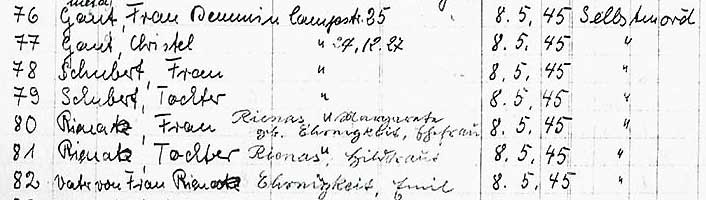 76 Gaut, Frau Demmin Lampstr. 25 8. 5. 45 Selbstmord
77 Gaut, Christel " 24.12.27 8. 5. 45 "
78 Schubert, Frau " 8. 5. 45 "
79 Schubert, Tochter " 8. 5. 45 "
80 Frau Rionas, Margarete 8. 5. 45 "
geb. Ehrnigkeit, Ehefrau
81 Tochter Rionas, Hildtraut 8. 5. 45 "
82 Vater von Frau Ehrnigkeit, Emil 8. 5. 45 "